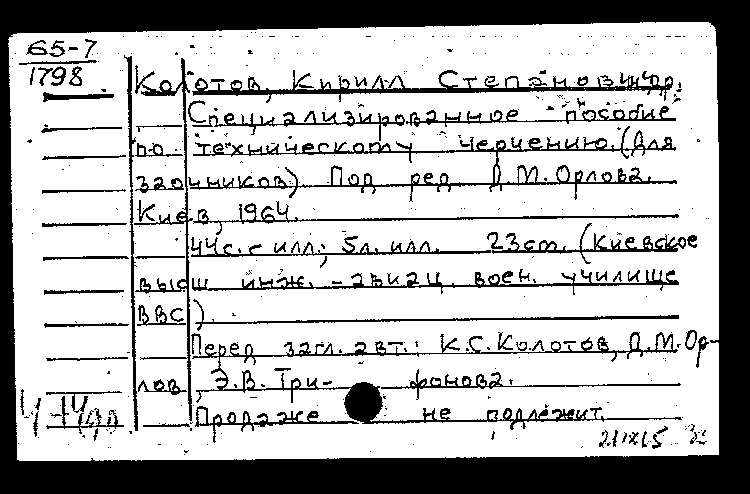 65-7
1798
Колотов, Кирилл Степанович и др.
Специализированное пособие
по техническому черчению. (Для
заочников) Под ред Д.М. Орлова.
Киев, 1964.
44с. с илл.; 5л. илл. 23см. (Киевское
высш инж. - авиац. воен. училище
ВВС).
Перед загл. авт.: К.С. Колотов, Д.М. Ор-
лов, Э.В. Три- фонова.
Продаже не подлежит.